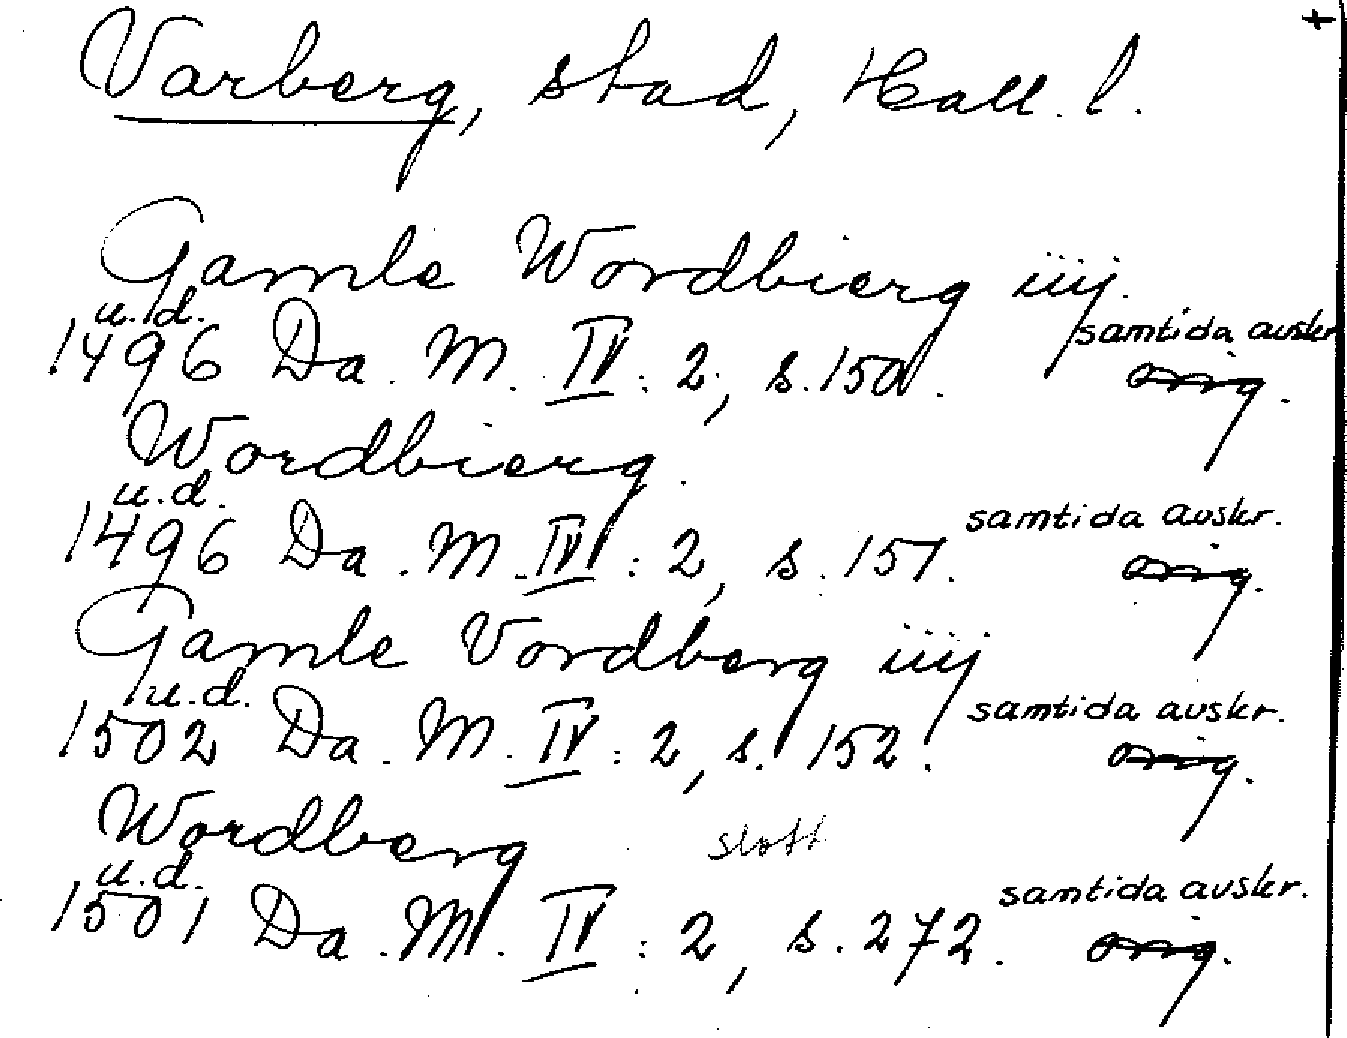 +
Varberg, stad, Hall. l.
Gamle Wordbierg iiij.
u.d. samtida avskr
1496 Da. M. IV: 2, s. 150. orig.
Wordbierg.
u.d. samtida avskr.
1496 Da. M. IV: 2, s. 151. orig.
Gamle Vordberg iiij
u.d. samtida avskr.
1502 Da. M. IV: 2, s. 152. orig.
Wordberg slott
u.d. samtida avskr.
1501 Da. M. IV: 2, s. 272. orig.